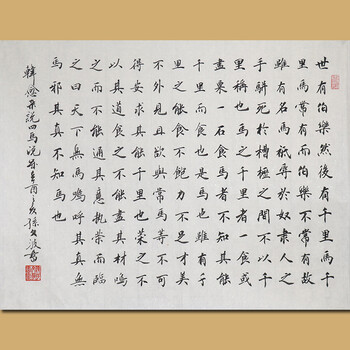 世有伯樂然後有千里馬千
里馬常有而伯樂不常有故
雖有名馬祇辱於奴隸人之
手駢死於槽櫪之間不以千
里稱也馬之千里者一食或
盡粟一石食馬者不知其能
千里而食也是馬也雖有千
里之能食不飽力不足才美
不外見且欲與常馬等不可
得安求其能千里也策之不
以其道食之不能盡其材鳴
之而不能通其意執策而臨
之曰天下無馬嗚呼其真無
馬邪其真不知馬也
韓愈雜說四馬說